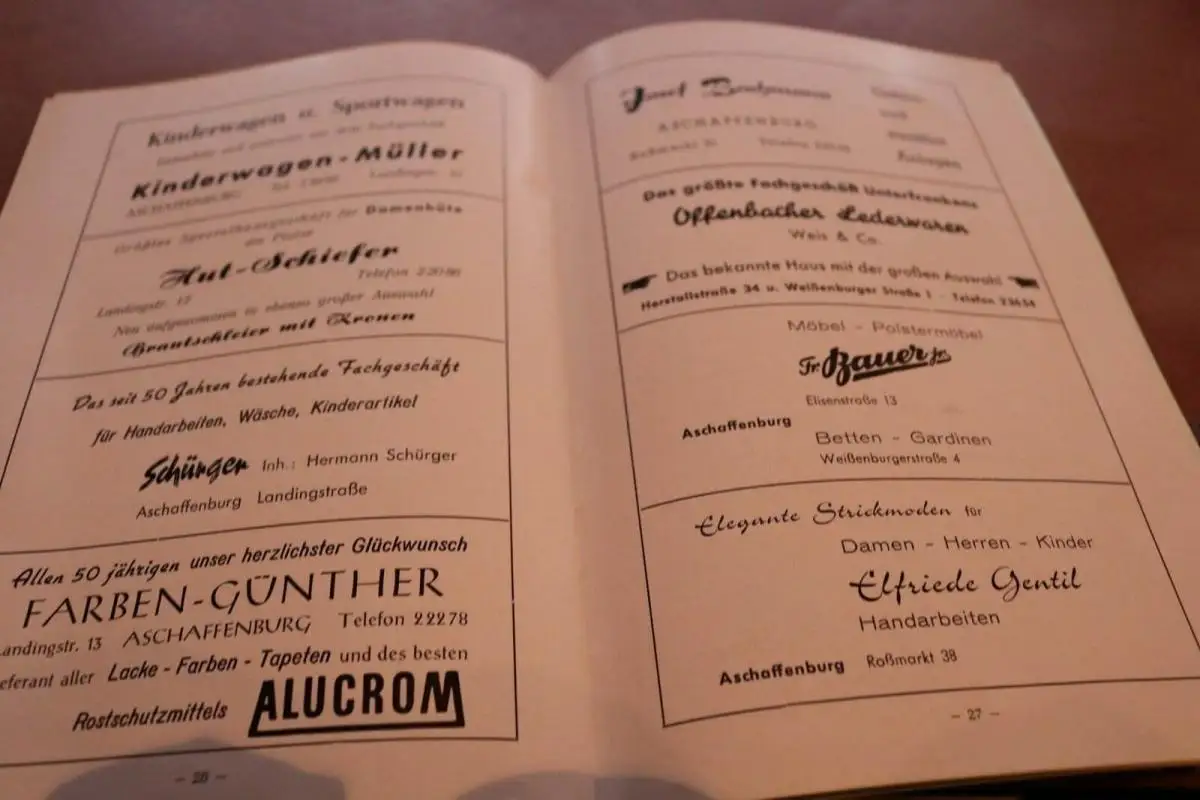 Kinderwagen u. Sportwagen
Kinderwagen-Müller
ASCHAFFENBURG
Größtes Spezialhutgeschäft für Damenhüte
am Platze
Hut-Schiefer
Landingstr. 17 Telefon
Neu aufgenommen in ebenso großer Auswahl
Brautschleier mit Kronen
Das seit 50 Jahren bestehende Fachgeschäft
für Handarbeiten, Wäsche, Kinderartikel
Schürger Inh.: Hermann Schürger
Aschaffenburg Landingstraße
Allen 50 jährigen unser herzlichster Glückwunsch
FARBEN-GÜNTHER
Landingstr. 13 ASCHAFFENBURG Telefon 22278
eferant aller Lacke - Farben - Tapeten und des besten
Rostschutzmittels ALUCROM
- 26 -
Josef
ASCHAFFENBURG
Das größte Fachgeschäft Unterfrankens
Offenbacher Lederwaren
Weis & Co.
Das bekannte Haus mit der großen Auswahl
Herstallstraße 34 u. Weißenburger Straße 1 - Telefon 23654
Möbel - Polstermöbel
Fr. Bauer jr.
Elisenstraße 13
Aschaffenburg
Betten - Gardinen
Weißenburgerstraße 4
Elegante Strickmoden für
Damen - Herren - Kinder
Elfriede Gentil
Handarbeiten
Aschaffenburg Roßmarkt 38
- 27 -